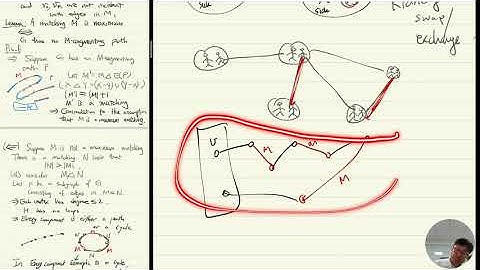 and v₀, vₙ are not incident
with edges in M.
Lemma: A matching M is maximum
⇔
G has no M-augmenting path
Proof
⇒ Suppose G has an M-augmenting
path P
M
Let M' = M Δ E(P)
(X Δ Y) = (X-Y) ∪ (Y-X)
|M'| = |M|+1
M' is a matching
⇒ Contradiction to the assumption
that M is a maximum matching.
(⇐) Suppose M is not a maximum matching
There is a matching N such that
|N| > |M|.
Consider M Δ N
Let H be a subgraph of G
consisting of edges in M Δ N.
⇒ Each vertex has degree ≤ 2.
H has no loops.
⇒ Every component is either a path
or a cycle
N
M
M
In Every component
a cycle,
side
side
Kidney
swap /
exchange
U
M
M
M